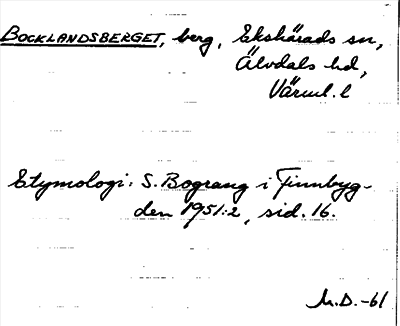 BOCKLANDSBERGET, berg, Ekshärads sn,
Älvdals hd,
Värml. l
Etymologi: S. Bograng i Finnbyg-
den 1951:2, sid. 16.
M.D. -61